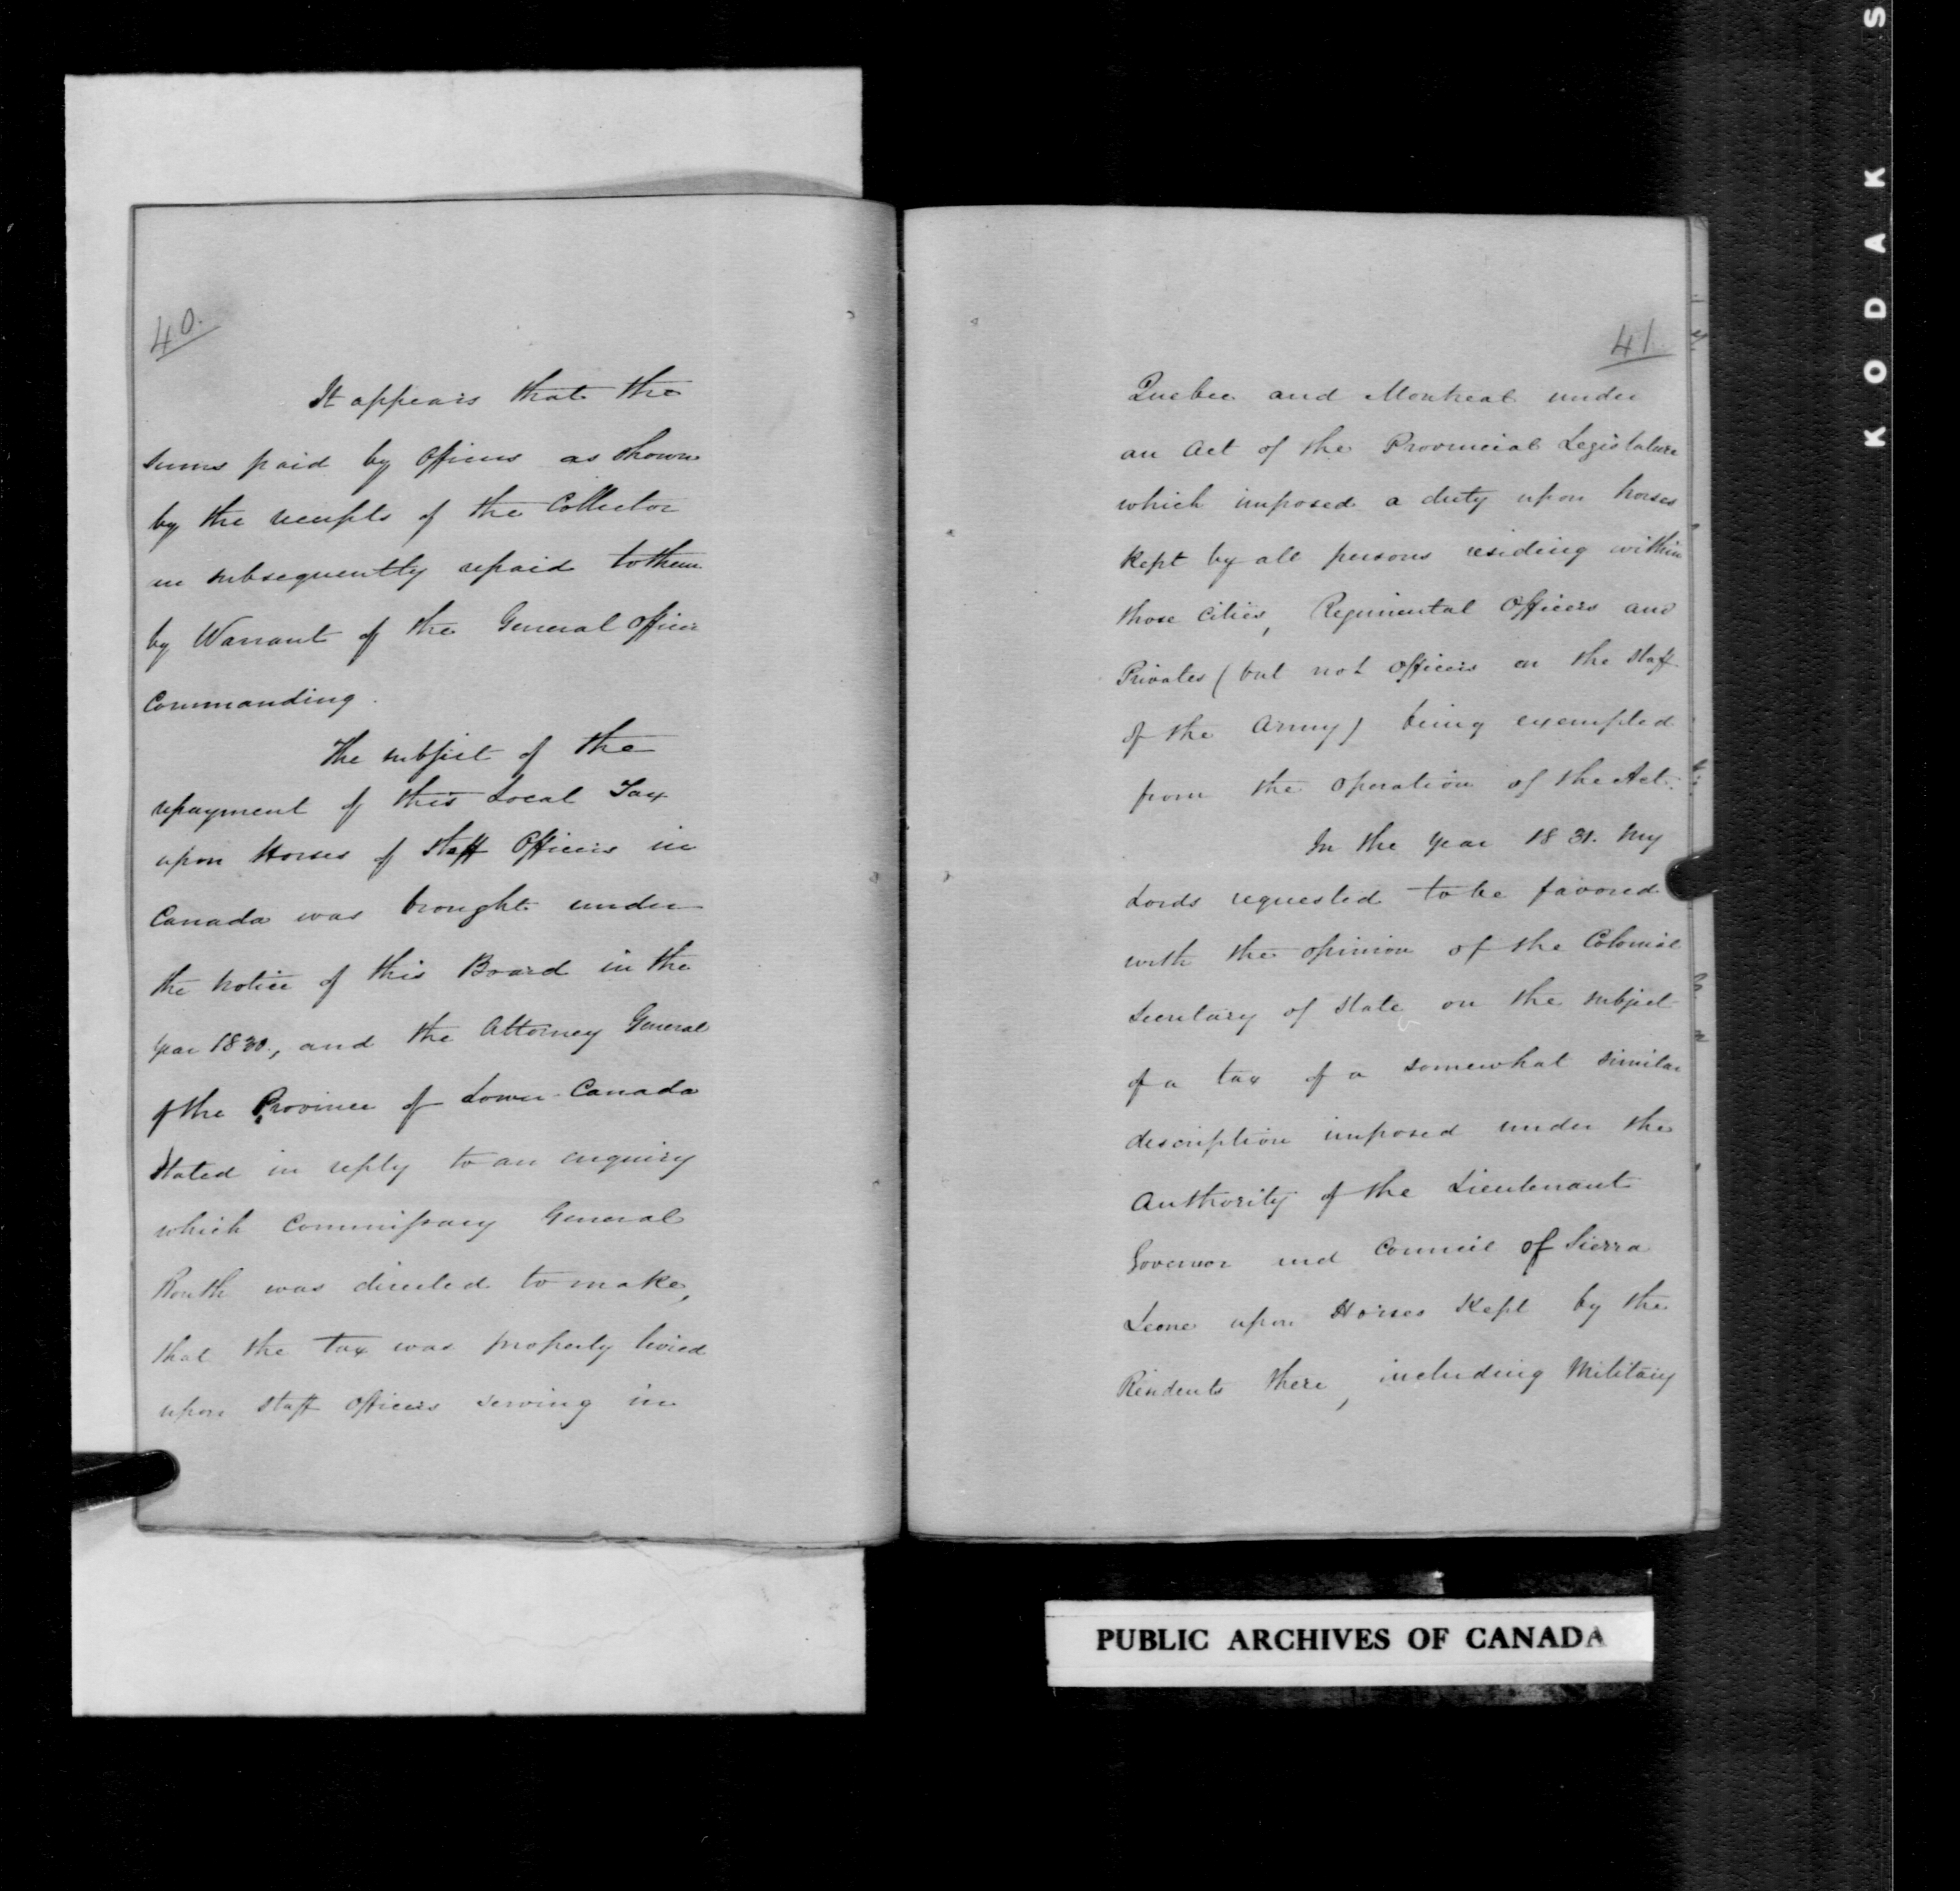 40.
It appears that the
sums paid by Officers as shown
by the receipts of the Collector
are subsequently repaid to them
by Warrant of the General Officer
Commanding.
The subject of the
repayment of this Local Tax
upon Horses of Staff Officers in
Canada was brought under
the notice of this Board in the
year 1830, and the Attorney General
of the Province of Lower Canada
stated in reply to an enquiry
which Commissary General
Routh was directed to make,
that the tax was properly levied
upon Staff Officers serving in
41.
Quebec and Montreal under
an Act of the Provincial Legislature
which imposed a duty upon horses
kept by all persons residing within
those Cities, Regimental Officers and
Privates (but not Officers on the Staff
of the Army) being exempted
from the operation of the Act.
In the year 1831. My
Lords requested to be favored
with the opinion of the Colonial
Secretary of State on the subject
of a tax of a somewhat similar
description imposed under the
Authority of the Lieutenant
Governor and Council of Sierra
Leone upon Horses Kept by the
Residents there, including Military
PUBLIC ARCHIVES OF CANADA
KODAK S